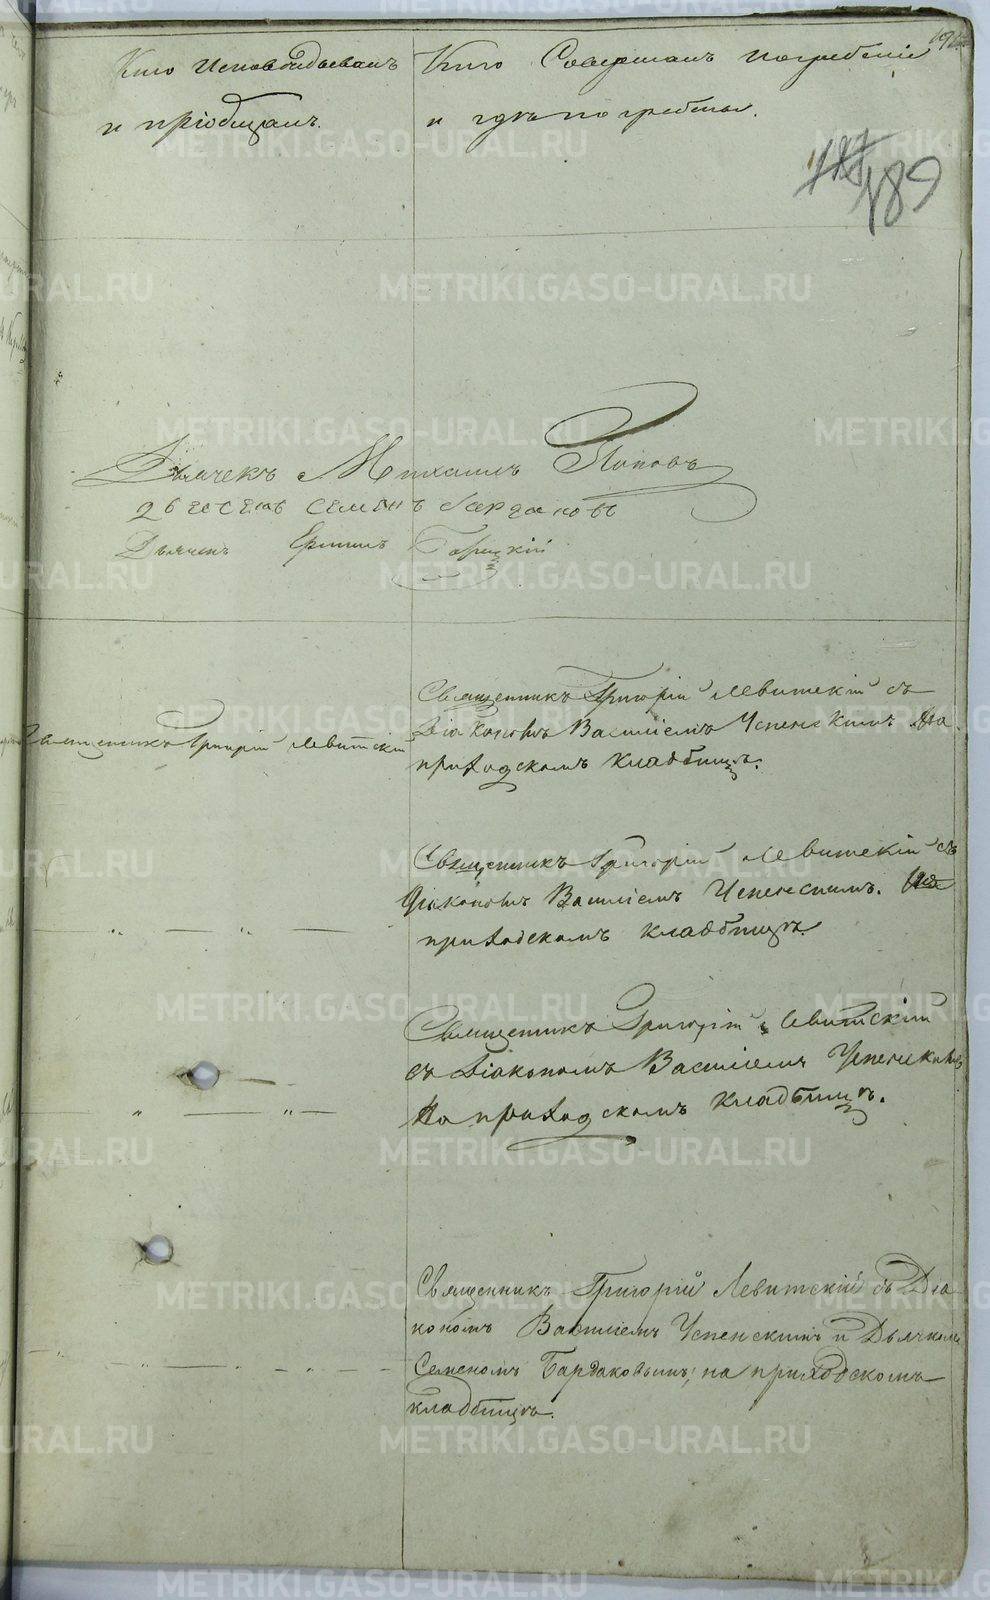 Кто Исповѣдывалъ
и пріобщалъ.
Кто Совершалъ погребеніе
и гдѣ погребены.
189
Дьячекъ Михаилъ Поповъ
Семенъ Бардаковъ
Дьячекъ
Священникъ Григорій Левитскій
Священникъ Григорій Левитскій съ
Діакономъ Василіемъ Успенскимъ На
приходскомъ кладбищѣ.
Священникъ Григорій Левитскій съ
Діакономъ Василіемъ Успенскимъ. На
приходскомъ кладбищѣ.
Священникъ Григорій Левитскій
съ Діакономъ Василіемъ Успенскимъ
На приходскомъ кладбищѣ.
Священникъ Григорій Левитскій съ Діа
кономъ Василіемъ Успенскимъ и Дьячкомъ
Семеномъ Бардаковымъ; на приходскомъ
кладбищѣ.
METRIKI.GASO-URAL.RU